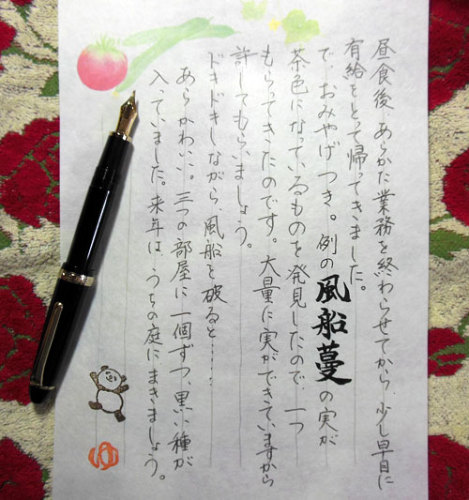 昼食後、あらかた業務を終わらせてから、少し早目に
有給をとって帰ってきました。
で、おみやげつき。例の風船蔓の実が
茶色になっているものを発見したので、一つ
もらってきたのです。大量に実ができていますから
許してもらいましょう。
ドキドキしながら、風船を破ると……
あらかわいい。三つの部屋に一個ずつ、黒い種が
入っていました。来年は、うちの庭にまきましょう。